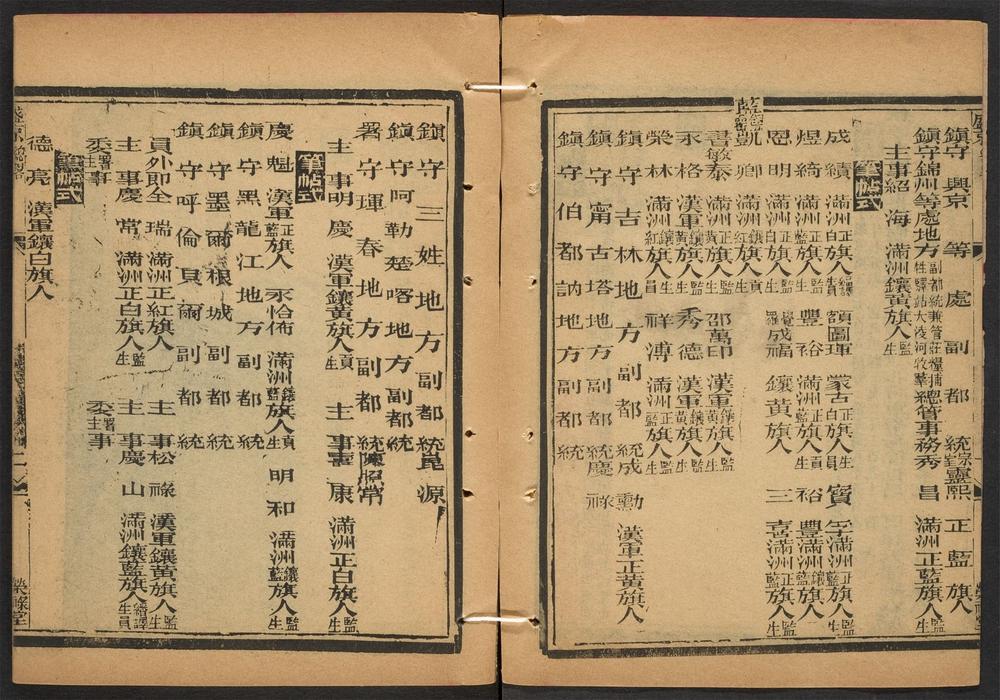 鎮守興京等處副都統靈熙正藍旗人
鎮守錦州等處地方副都統兼管莊糧捕牲驛站大淩河牧羣總管事務秀昌滿洲正藍旗人監生
主事紹海滿洲鑲黃旗人監生
筆帖式
成績滿洲正白旗人 額圖琿蒙古正白旗人生員 寶孚滿洲正藍旗人監生
煜綺滿洲正藍旗人監生 豐裕滿洲正藍旗人監生 裕豐滿洲鑲藍旗人監生
恩明滿洲正白旗人監生 覺羅成福鑲黃旗人 三喜滿洲正藍旗人監生
凱卿滿洲鑲紅旗人貢生
書敏泰滿洲鑲黃旗人監生 邵萬印漢軍鑲黃旗人監生
永格漢軍鑲黃旗人監生 秀德漢軍鑲黃旗人監生
榮林滿洲鑲紅旗人生員 祥溥滿洲正藍旗人監生
鎮守吉林地方副都統成勳漢軍正黃旗人
鎮守甯古塔地方副都統慶祿
鎮守伯都訥地方副都統
鎮守三姓地方副都統崑源
鎮守阿勒楚喀地方副都統
署守琿春地方副都統陳昭常
主事明慶漢軍鑲黃旗人貢生 主事壽康滿洲正白旗人監生
筆帖式
慶魁漢軍正藍旗人 永恰佈滿洲鑲藍旗人貢生 明和滿洲鑲藍旗人監生
鎮守黑龍江地方副都統
鎮守墨爾根城副都統
鎮守呼倫貝爾副都統
員外郎全瑞滿洲正紅旗人 主事松祿漢軍鑲黃旗人監生
主事慶常滿洲正白旗人監生 主事慶山滿洲鑲藍旗人繙譯生員
委署主事 委署主事
筆帖式
德亮漢軍鑲白旗人
榮祿堂